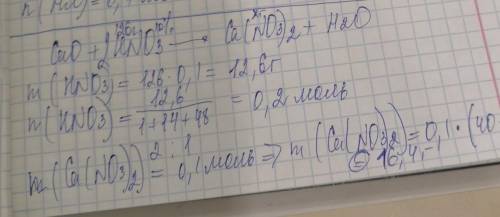 126г 10% x
CaO + 2HNO3 → Ca(NO3)2 + H2O
m(HNO3) = 126 · 0,1 = 12,6г
n(HNO3) = 12,6 / 1+14+48 = 0,2 моль
2 : 1
n(Ca(NO3)2) = 0,1 моль => m(Ca(NO3)2) = 0,1 · (40
= 16,4